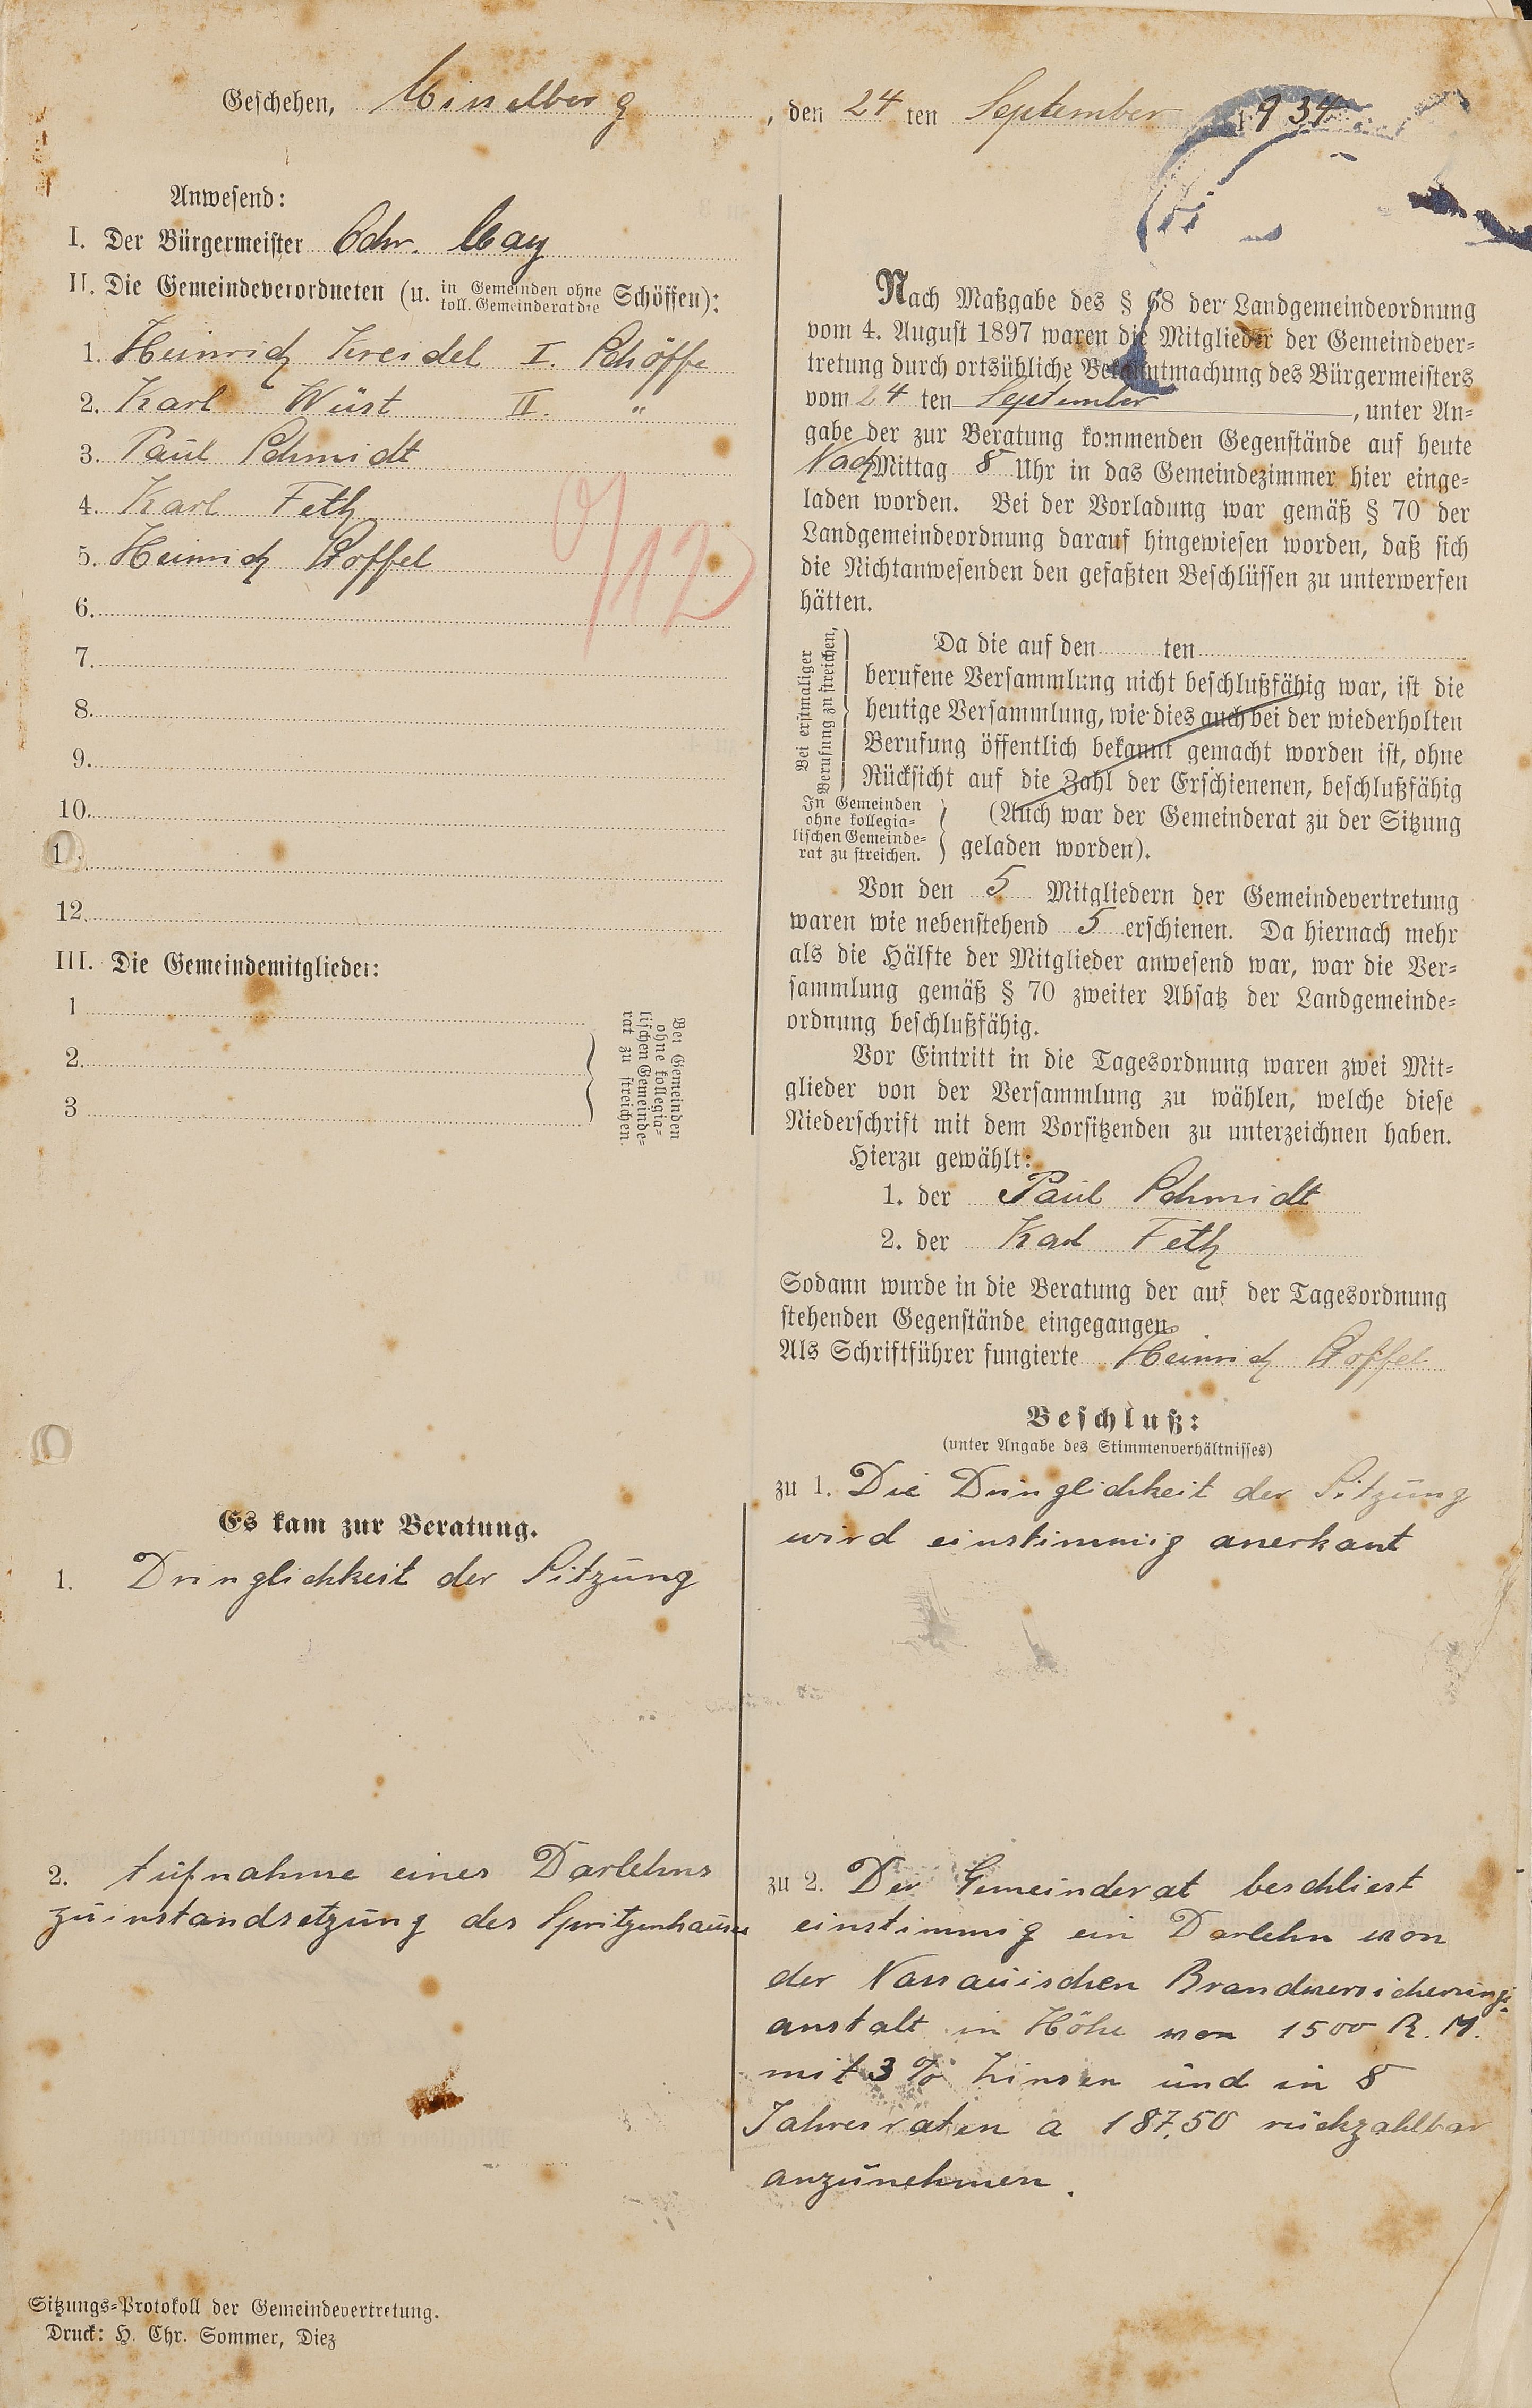 Geschehen, Misselberg, den 24 ten September 1934
Anwesend:
I. Der Bürgermeister Chr. May
II. Die Gemeindeverordneten (u. in Gemeinden ohne koll. Gemeinderat die Schöffen):
1. Heinrich Kreidel I. Schöffe
2. Karl Wüst II. "
3. Paul Schmidt
4. Karl Feth
5. Heinrich Stoffel
6.
7.
8.
9.
10.
1 .
12.
III. Die Gemeindemitglieder:
1
2.
3
Bei Gemeinden
ohne kollegia-
lischen Gemeinde-
rat zu streichen.
9/12
Nach Maßgabe des § 68 der Landgemeindeordnung
vom 4. August 1897 waren die Mitglieder der Gemeindever-
tretung durch ortsübliche Bekanntmachung des Bürgermeisters
vom 24 ten September, unter An-
gabe der zur Beratung kommenden Gegenstände auf heute
Nach Mittag 8 Uhr in das Gemeindezimmer hier einge-
laden worden. Bei der Vorladung war gemäß § 70 der
Landgemeindeordnung darauf hingewiesen worden, daß sich
die Nichtanwesenden den gefaßten Beschlüssen zu unterwerfen
hätten.
Bei erstmaliger
Berufung zu streichen,
Da die auf den ten
berufene Versammlung nicht beschlußfähig war, ist die
heutige Versammlung, wie dies auch bei der wiederholten
Berufung öffentlich bekannt gemacht worden ist, ohne
Rücksicht auf die Zahl der Erschienenen, beschlußfähig
In Gemeinden
ohne kollegia-
lischen Gemeinde-
rat zu streichen.
(Auch war der Gemeinderat zu der Sitzung
geladen worden).
Von den 5 Mitgliedern der Gemeindevertretung
waren wie nebenstehend 5 erschienen. Da hiernach mehr
als die Hälfte der Mitglieder anwesend war, war die Ver-
sammlung gemäß § 70 zweiter Absatz der Landgemeinde-
ordnung beschlußfähig.
Vor Eintritt in die Tagesordnung waren zwei Mit-
glieder von der Versammlung zu wählen, welche diese
Niederschrift mit dem Vorsitzenden zu unterzeichnen haben.
Hierzu gewählt:
1. der Paul Schmidt
2. der Karl Feth
Sodann wurde in die Beratung der auf der Tagesordnung
stehenden Gegenstände eingegangen
Als Schriftführer fungierte Heinrich Stoffel
Es kam zur Beratung.
1. Dringlichkeit der Sitzung
2. Aufnahme eines Darlehns
zuinstandsetzung des Spritzenhauses
Beschluß:
(unter Angabe des Stimmenverhältnisses)
zu 1. Die Dringlichkeit der Sitzung
wird einstimmig anerkant
zu 2. Der Gemeinderat beschliest
einstimmig ein Darlehn von
der Nassauischen Brandversicherungs-
anstalt in Höhe von 1500 R. M.
mit 3 % Zinsen und in 8
Jahresraten a 187,50 rückzahlbar
anzunehmen.
Sitzungs-Protokoll der Gemeindevertretung.
Druck: H. Chr. Sommer, Diez